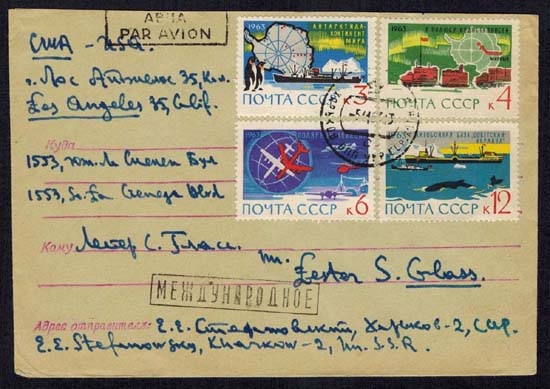 АВИА
PAR AVION
США - USA
г. Лос Анжелос 35, Кал.
Los Angeles 35, Calif.
Куда
1553, 
1553, So. La Cienega Blvd
Кому Лестер С. Гласс.
Mr. Lester S. Glass.
МЕЖДУНАРОДНОЕ
Адрес отправителя: Е.Е. Стефановский, Харьков-2, СССР.
E.E. Stefanowsky, Kharkow-2, U.S.S.R.
1963
АНТАРКТИДА-
КОНТИНЕНТ
МИРА
ПОЧТА СССР к3
1963
ПОЧТА СССР к4
1963
ПОЧТА СССР к6
1963
ПОЧТА СССР к12